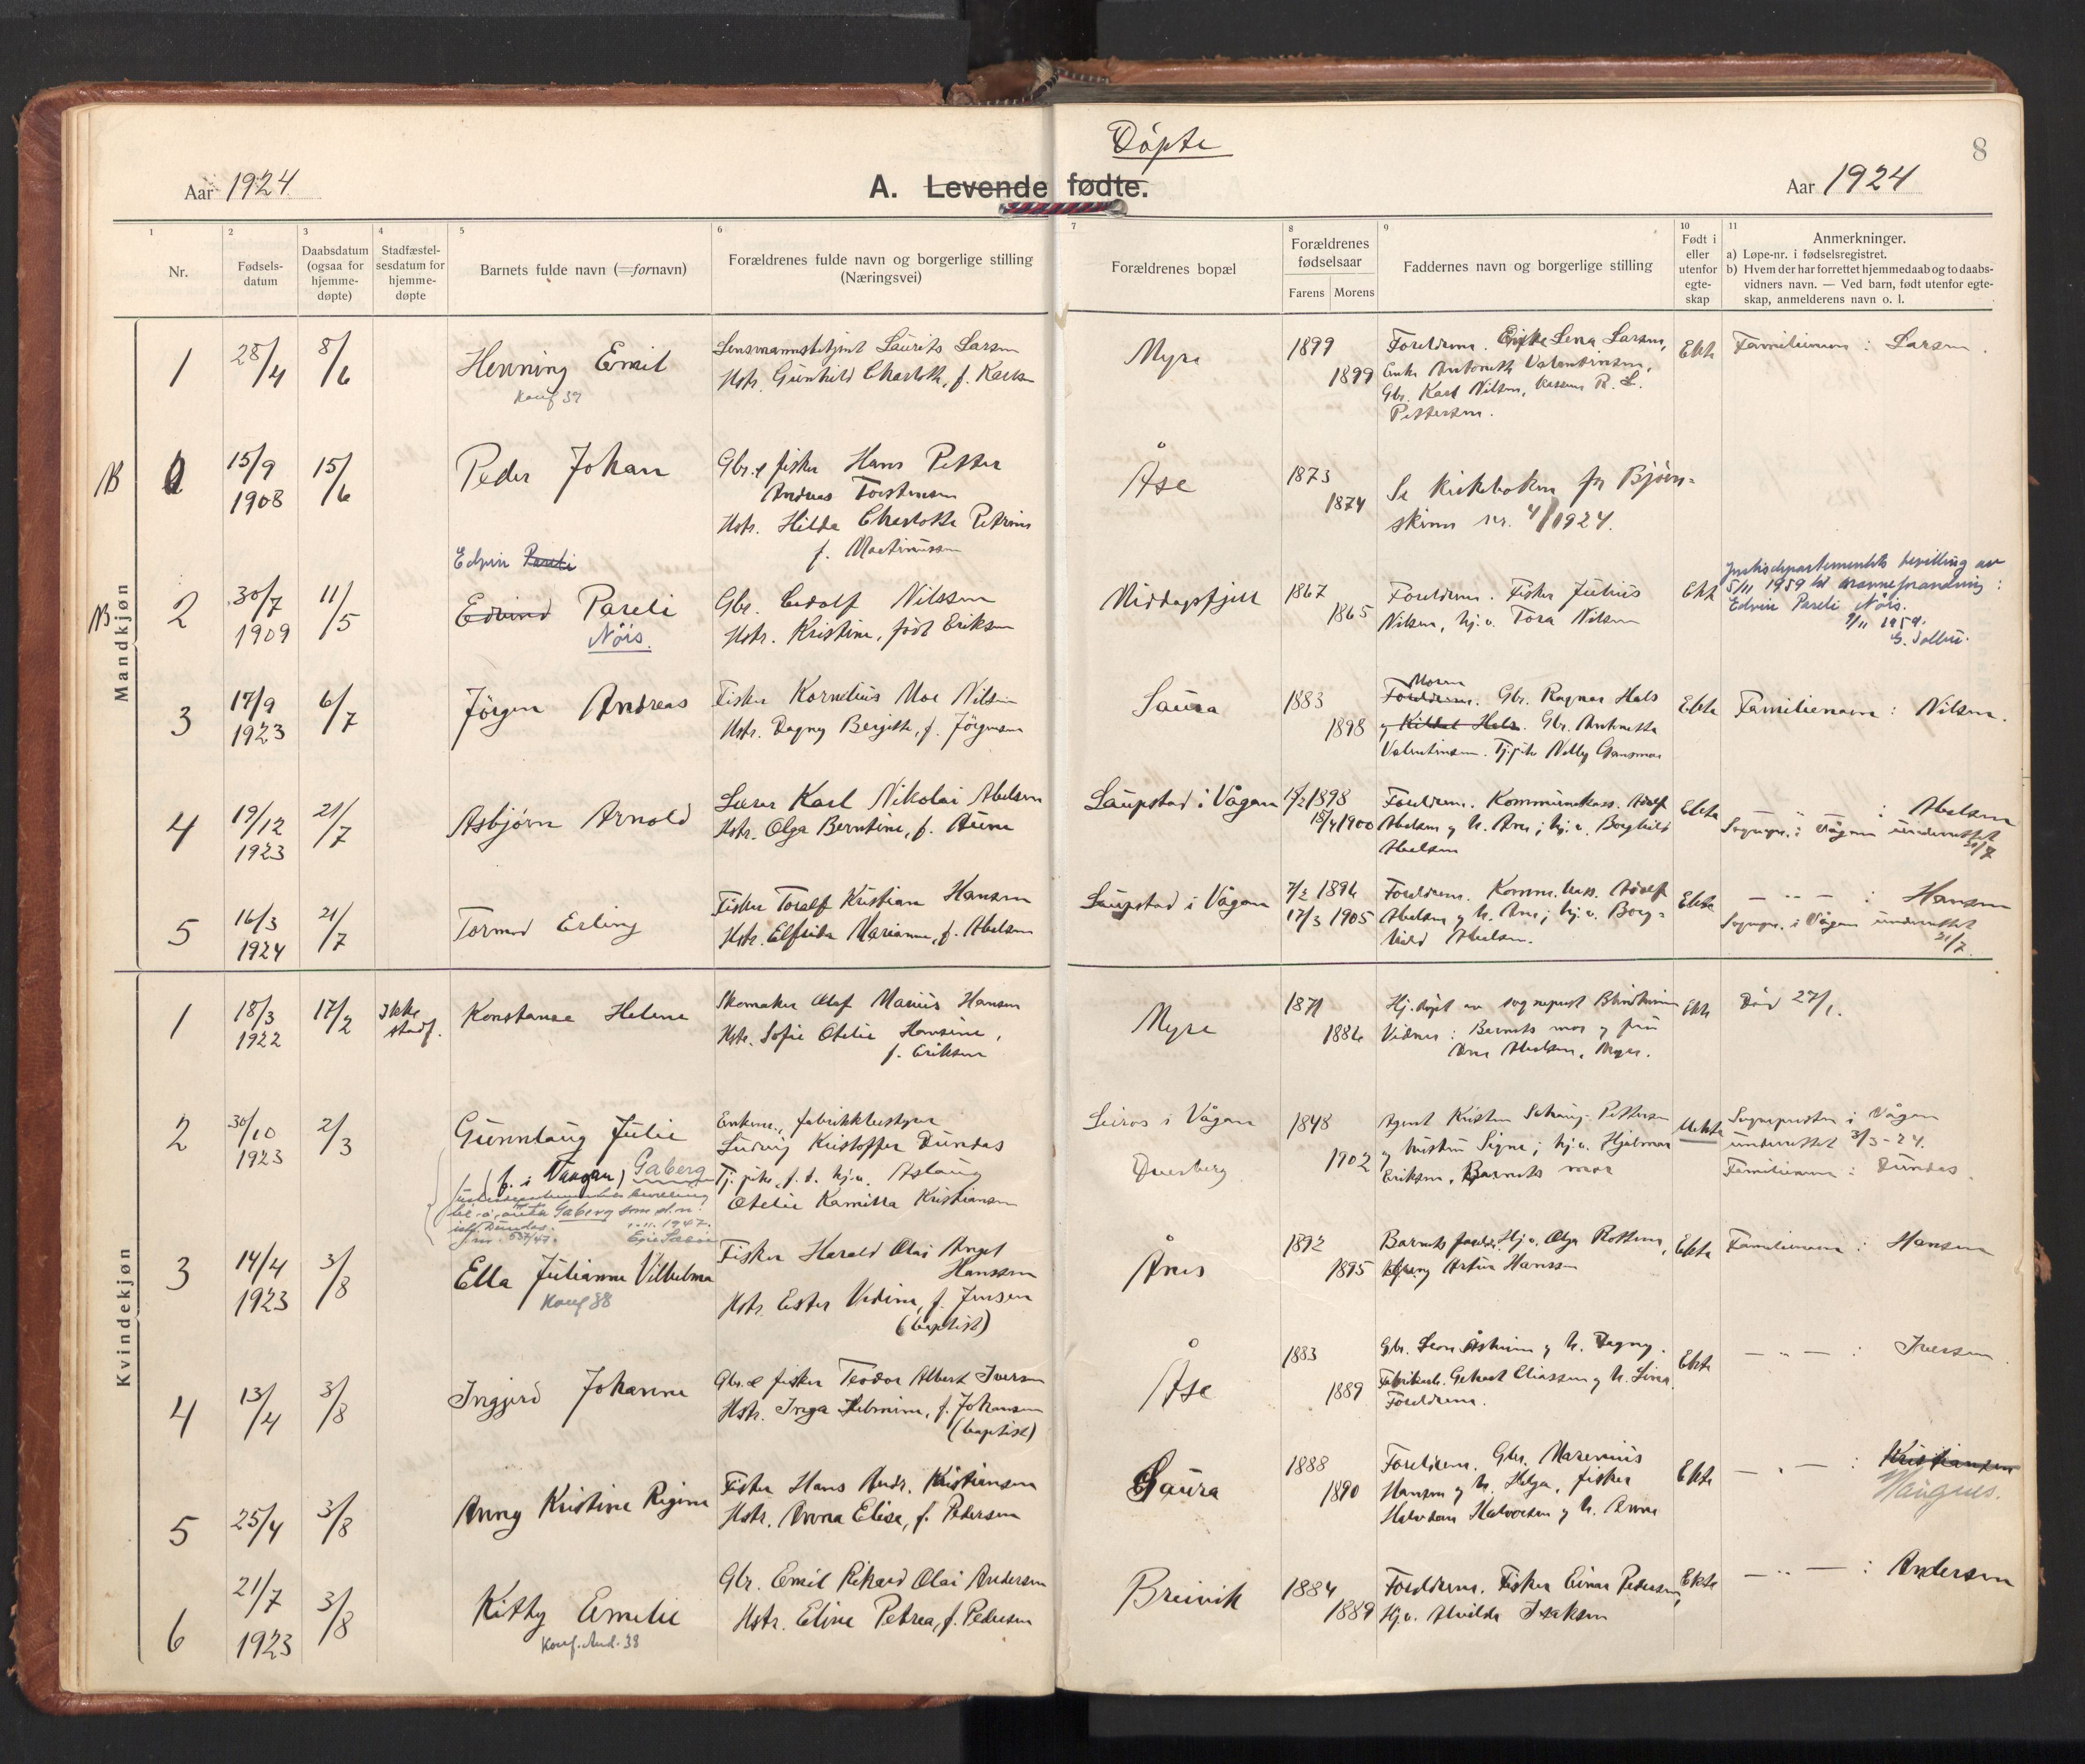 Døpte
8
Aar 1924
A. Levende fødte.
Aar 1924
1
Nr.
2
Fødsels-
datum
3
Daabsdatum
(ogsaa for
hjemme-
døpte)
4
Stadfæstel-
sesdatum for
hjemme-
døpte
5
Barnets fulde navn (=fornavn)
6
Forældrenes fulde navn og borgerlige stilling
(Næringsvei)
7
Forældrenes bopæl
8
Forældrenes
fødselsaar
Farens Morens
9
Faddernes navn og borgerlige stilling
10
Født i
eller
utenfor
egte-
skap
11
Anmerkninger.
a) Løpe-nr. i fødselsregistret.
b) Hvem der har forrettet hjemmedaab og to daabs-
vidners navn. — Ved barn, født utenfor egte-
skap, anmelderens navn o. l.
Mandkjøn
1
28/4
8/6
Henning Emil
Konf 39
Lensmannsbetjent Laurits Larsen
Hstr. Gunhild Charlotte, f. Karlsen
Myre
1899
1899
Foreldrene. Enke Lena Larsen,
Enke Antonette Valentinsen,
Gbr. Karl Nilsen,
Pettersen.
Ekte
Familienavn: Larsen.
NB
15/9
1908
15/6
Peder Johan
Gbr. & fisker Hans Petter
Andreas Torstensen
Hstr. Hilda Charlotte Petrine
f. Martinussen
Åse
1873
1874
Se kirkeboken for Bjørn-
skinn nr. 4/1924.
NB
2
30/7
1909
11/5
Edvin Pareli
Edvind Pareli
Nöis.
Gbr. Edolf Nilssen
Hstr. Kristine, født Eriksen
Middagsfjell
1867
1865
Foreldrene. Fisker Julius
Nilsen, hj.v. Tora Nilsen
Ekte
Justisdepartementets bevilling av
5/11 1959 til navneforandring:
Edvin Pareli Nöis.
9/11 1959.
3
17/9
1923
6/7
Jörgen Andreas
Fisker Kornelius Moe Nilsen
Hstr. Dagny Bergitte, f. Jörgensen
Saura
1883
1898
Moren
Foreldrene. Gbr. Ragnar Hals
og Kildal Hals. Gbr. Antonette
Valentinsen. Tj.pike Nelly Gransmo
Ekte
Familienavn: Nilsen.
4
19/12
1923
21/7
Asbjörn Arnold
Lærer Karl Nikolai Abelsen
Hstr. Olga Berntine, f. Aune
Laupstad i Vågan
1898
15/4 1900
Foreldrene. Kommunekass. Adolf
Abelsen og h. Ane; hj.v. Borghild
Abelsen
Ekte
— " — : Abelsen
Sognepr. i Vågan underrettet
21/7
5
16/3
1924
21/7
Tormod Erling
Fisker Toralf Kristian Hansen
Hstr. Elfrida Marianne, f. Abelsen
Laupstad i Vågan
7/2 1896
17/3 1905
Foreldrene. Komm. kass. Adolf
Abelsen og h. Ane; hj.v. Borg-
hild Abelsen.
Ekte
— " — : Hansen
Sognepr. i Vågan underrettet
21/7.
Kvindekjøn
1
18/3
1922
17/2
Ikke
stadf.
Konstanse Helene
Skomaker Olaf Marius Hansen
Hstr. Sofie Otelie Hansine,
f. Eriksen
Myre
1886
Hj.døpt av sogneprest Blindheim
Vidner: Barnets mor og fru
Ane Abelsen, Myre.
Ekte
Død 27/1.
2
30/10
1923
2/3
Gunnlaug Julie
(f. i Vaagan) Gaberg
Justisdepartementets bevilling
til å anta Gaberg som sl.n.
istf. Dundas. 1.11.1947.
jnr. 537/47.
Enkem., fabrikkbestyrer
Ludvig Kristoffer Dundas
Tj.pike, f.t. hj.v. Aslaug
Otelie Kamilla Kristiansen
i Vågan
Dverberg
1848
1902
Agent Kristen Schang-Pettersen
og hustru Signe; hj.v. Hjalmar
Eriksen, Barnets mor
Uekte
Sognepresten i Vågan
underrettet 3/3-24.
Familienavn: Dundas.
3
14/4
1923
3/8
Ella Julianne Vilhelma
Konf 38
Fisker Harald Olai Angel
Hanssen
Hstr. Ester Vedine, f. Jensen
(baptist)
Ånes
1892
1895
Barnets foreldre. Hj.v. Olga Rottem,
Artur Hanssen
Ekte
Familienavn: Hansen
4
13/4
3/8
Ingjerd Johanne
Gbr. & fisker Teodor Albert Iversen
Hstr. Inga Helmine, f. Johansen
(baptist)
Åse
1883
1889
Gbr. Leon Åsheim og h. Dagny.
Fabrikarb. Gerhart Eliassen og h. Lina.
Foreldrene.
Ekte
— " — : Iversen
5
25/4
3/8
Anny Kristine Regine
Fisker Hans Andr. Kristiansen
Hstr. Anna Elise, f. Pedersen
Saura
1888
1890
Foreldrene. Gbr. Marenius
Hansen og h. Helga, fisker
Halvdan Halvorsen og h. Anna
Ekte
— " — : Kristiansen
Haugnes.
6
21/7
1923
3/8
Kitty Emelie
Konf. And. 38
Gbr. Emil Rikard Olai Andersen
Hstr. Eline Petrea, f. Pedersen
Breivik
1884
1889
Foreldrene. Fisker Einar Pedersen,
Hj.v. Alvilda Isaksen
Ekte
— " — : Andersen